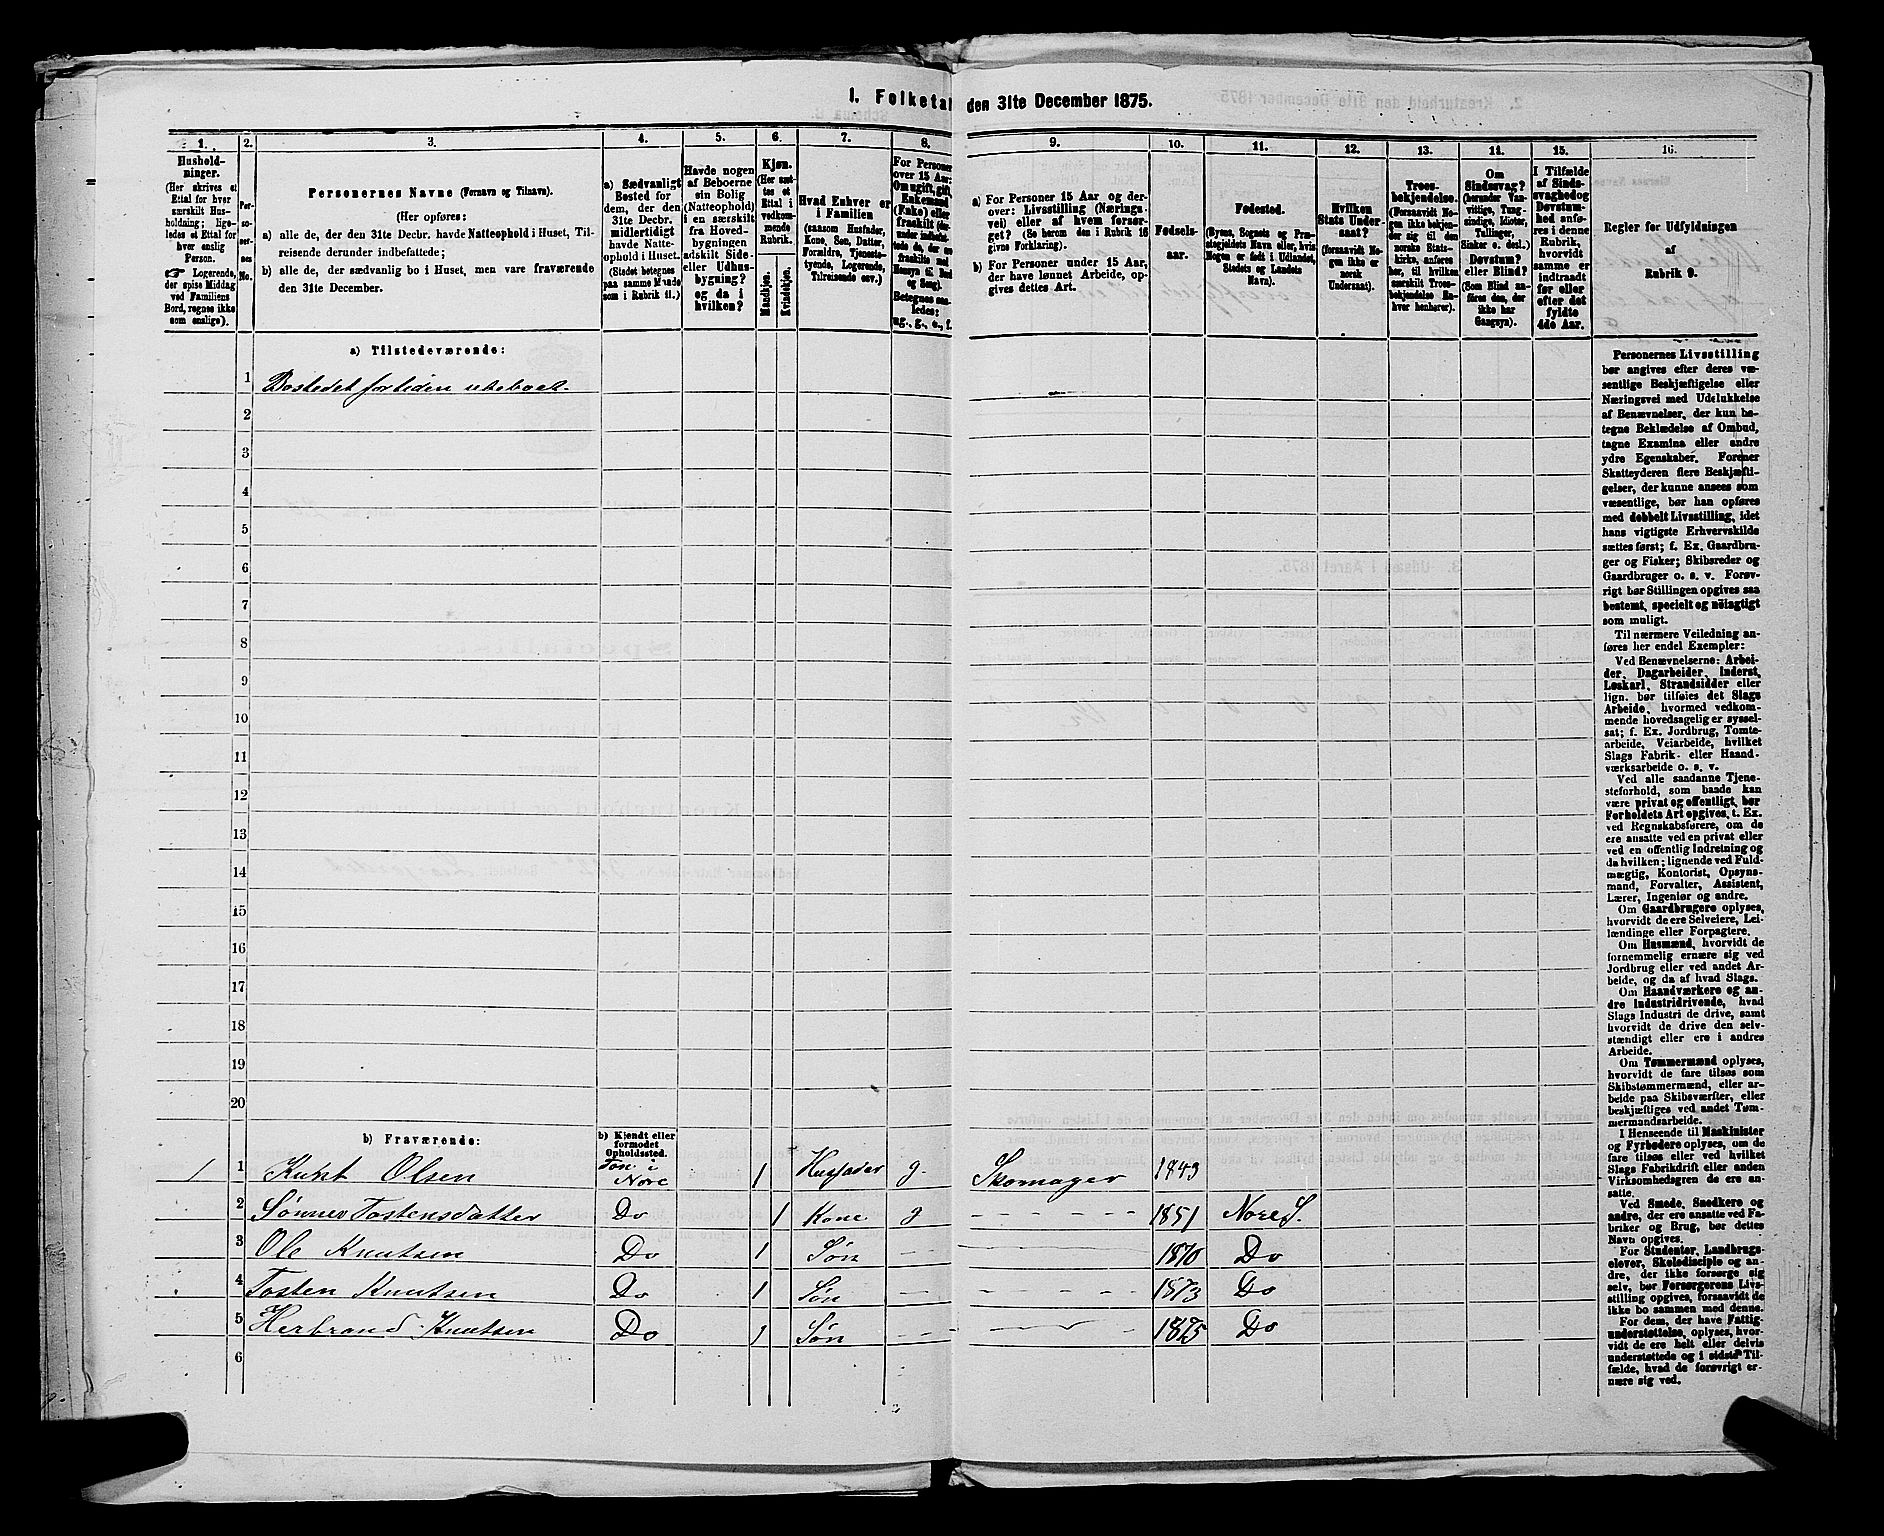 1. Folketal den 31te December 1875.
1.
Hushold-
ninger.
(Her skrives et
Ettal for hver
særskilt Hus-
holdning; lige-
ledes et Ettal for
hver enslig
Person.
Logerende,
der spise Middag
ved Familiens
Bord, regnes ikke
som enslige).
2.
Per-
so-
ner-
nes
No.
3.
Personernes Navne (Fornavn og Tilnavn).
(Her opføres:
a) alle de, der den 31te Decbr. havde Natteophold i Huset, Til-
reisende derunder indbefattede;
b) alle de, der sædvanlig bo i Huset, men vare fraværende
den 31te December.
4.
a) Sædvanligt
Bosted for
dem, der den
31te Decbr.
midlertidigt
havde Natte-
ophold i Huset.
(Stedet betegnes
paa samme Maade
som i Rubrik 11.)
5.
Havde nogen
af Beboerne
sin Bolig
(Natteophold)
i en særskilt
fra Hoved-
bygningen
adskilt Side-
eller Udhus-
bygning?
og da i
hvilken?
6.
Kjøn.
(Her sæt-
tes et
Ettal i
vedkom-
mende
Rubrik.
Mandkjøn.
Kvindekjøn.
7.
Hvad Enhver er
i Familien
(saasom Husfader,
Kone, Søn, Datter,
Forældre, Tjeneste-
tyende, Logerende,
Tilreisende osv.)
8.
For Personer
over 15 Aar:
Om ugift, gift,
Enkemand
(Enke) eller
fraskilt
Betegnes saa-
ledes:
ug., g., e., f.
9.
a) For Personer 15 Aar og der-
over: Livsstilling (Nærings-
vei) eller af hvem forsør-
get? (Se herom den i Rubrik 16
givne Forklaring).
b) For Personer under 15 Aar,
der have lønnet Arbeide, op-
gives dettes Art.
10.
Fødsels-
aar.
11.
Fødested.
(Byens, Sognets og Præ-
stegjeldets Navn eller, hvis
Nogen er født i Udlandet,
Stedets og Landets
Navn).
12.
Hvilken
Stats Under-
saat?
(forsaavidt No-
gen ikke er
norsk
Undersaat).
13.
Troes-
bekjendelse.
(Forsaavidt No-
gen ikke bekjen-
der sig til den
norske Stats-
kirke, anføres
her, til hvilken
særskilt Troes-
bekjendelse En-
hver henhører).
14.
Om
Sindssvag?
(herunder Van-
vittige, Tung-
sindige, Idioter,
Tullinger,
Sinker o. desl.)
Døvstum?
eller Blind?
(Som Blind an-
føres den, der
ikke har
Gangsyn).
15.
I Tilfælde
af Sinds-
svaghed og
Døvstum-
hed anfø-
res i denne
Rubrik,
hvorvidt
samme er
indtraadt
før eller
efter det
fyldte
4de Aar.
16.
Regler for Udfyldningen
af
Rubrik 9.
a) Tilstedeværende:
1 Bostedet fortiden ubeboet.
2
3
4
5
6
7
8
9
10
11
12
13
14
15
16
17
18
19
20
b) Fraværende:
b) Kjendt eller
formodet
Opholdssted.
1 1 Knut Olsen i Nore 1 Husfader g. Skomager 1843
2 Sønnev Tostensdatter Do 1 Kone g - - - - - 1851 Nore S.
3 Ole Knutsen Do 1 Søn — 1870 Do
4 Tosten Knutsen Do 1 Søn — 1873 Do
5 Herbrand Knutsen Do 1 Søn — 1875 Do
6
Personernes Livsstilling
bør angives efter deres væ-
sentlige Beskjæftigelse eller
Næringsvei med Udelukkelse
af Benævnelser, der kun be-
tegne Beklædelse af Ombud,
tagne Examina eller andre
ydre Egenskaber. Forener
Skatteyderen flere Beskjæfti-
gelser, der kunne ansees som
væsentlige, bør han opføres
med dobbelt Livsstilling, idet
hans vigtigste Erhvervskilde
sættes først; f. Ex. Gaardbru-
ger og Fisker; Skibsreder og
Gaardbruger o. s. v. Forøv-
rigt bør Stillingen opgives saa
bestemt, specielt og nöiagtigt
som muligt.
Til nærmere Veiledning an-
føres her endel Exempler:
Ved Benævnelserne: Arbei-
der, Dagarbeider, Inderst,
Løskarl, Strandsidder eller
lign. bør tilføies det Slags
Arbeide, hvormed vedkom-
mende hovedsagelig er syssel-
sat; f. Ex. Jordbrug, Tomte-
arbeide, Veiarbeide, hvilket
Slags Fabrik- eller Haand-
værksarbeide o. s. v.
Ved alle saadanne Tjene-
steforhold, som baade kan
være privat og offentligt, bør
Forholdets Art opgives, t. Ex.
ved Regnskabsførere, om de
ere ansatte ved en privat eller
ved en offentlig Indretning og
da hvilken; lignende ved Fuld-
mægtig, Kontorist, Opsyns-
mand, Forvalter, Assistent,
Lærer, Ingeniør og andre.
Om Gaardbrugere oplyses,
hvorvidt de ere Selveiere, Lei-
lændinge eller Forpagtere.
Om Husmænd, hvorvidt de
fornemmelig ernære sig ved
Jordbrug eller ved andet Ar-
beide, og da af hvad Slags.
Om Haandværkere og an-
dre Industridrivende, hvad
Slags Industri de drive, samt
hvorvidt de drive den selv-
stændigt eller ere i andres
Arbeide.
Om Tømmermænd oplyses,
hvorvidt de fare tilsøs som
Skibstømmermænd, eller ar-
beide paa Skibsværfter, eller
beskjæftiges ved andet Tøm-
mermandsarbeide.
I Henseende til Maskinister
og Fyrbødere oplyses, om de
fare tilsøs eller ved hvilket
Slags Fabrikdrift eller anden
Virksomhedsgren de ere an-
satte.
Ved Smede, Snedkere og
andre, der ere ansatte ved Fa-
briker og Brug, bør dettes
Navn opgives.
For Studenter, Landbrugs-
elever, Skoledisciple og an-
dre, der ikke forsørge sig
selv, bør Forsørgerens Livs-
stilling opgives, forsaavidt de
ikke bo sammen med denne.
For dem, der have Fattig-
understøttelse, oplyses, hvor-
vidt de ere helt eller delvis
understøttede og i sidste Til-
fælde, hvad de forøvrigt er-
nære sig ved.